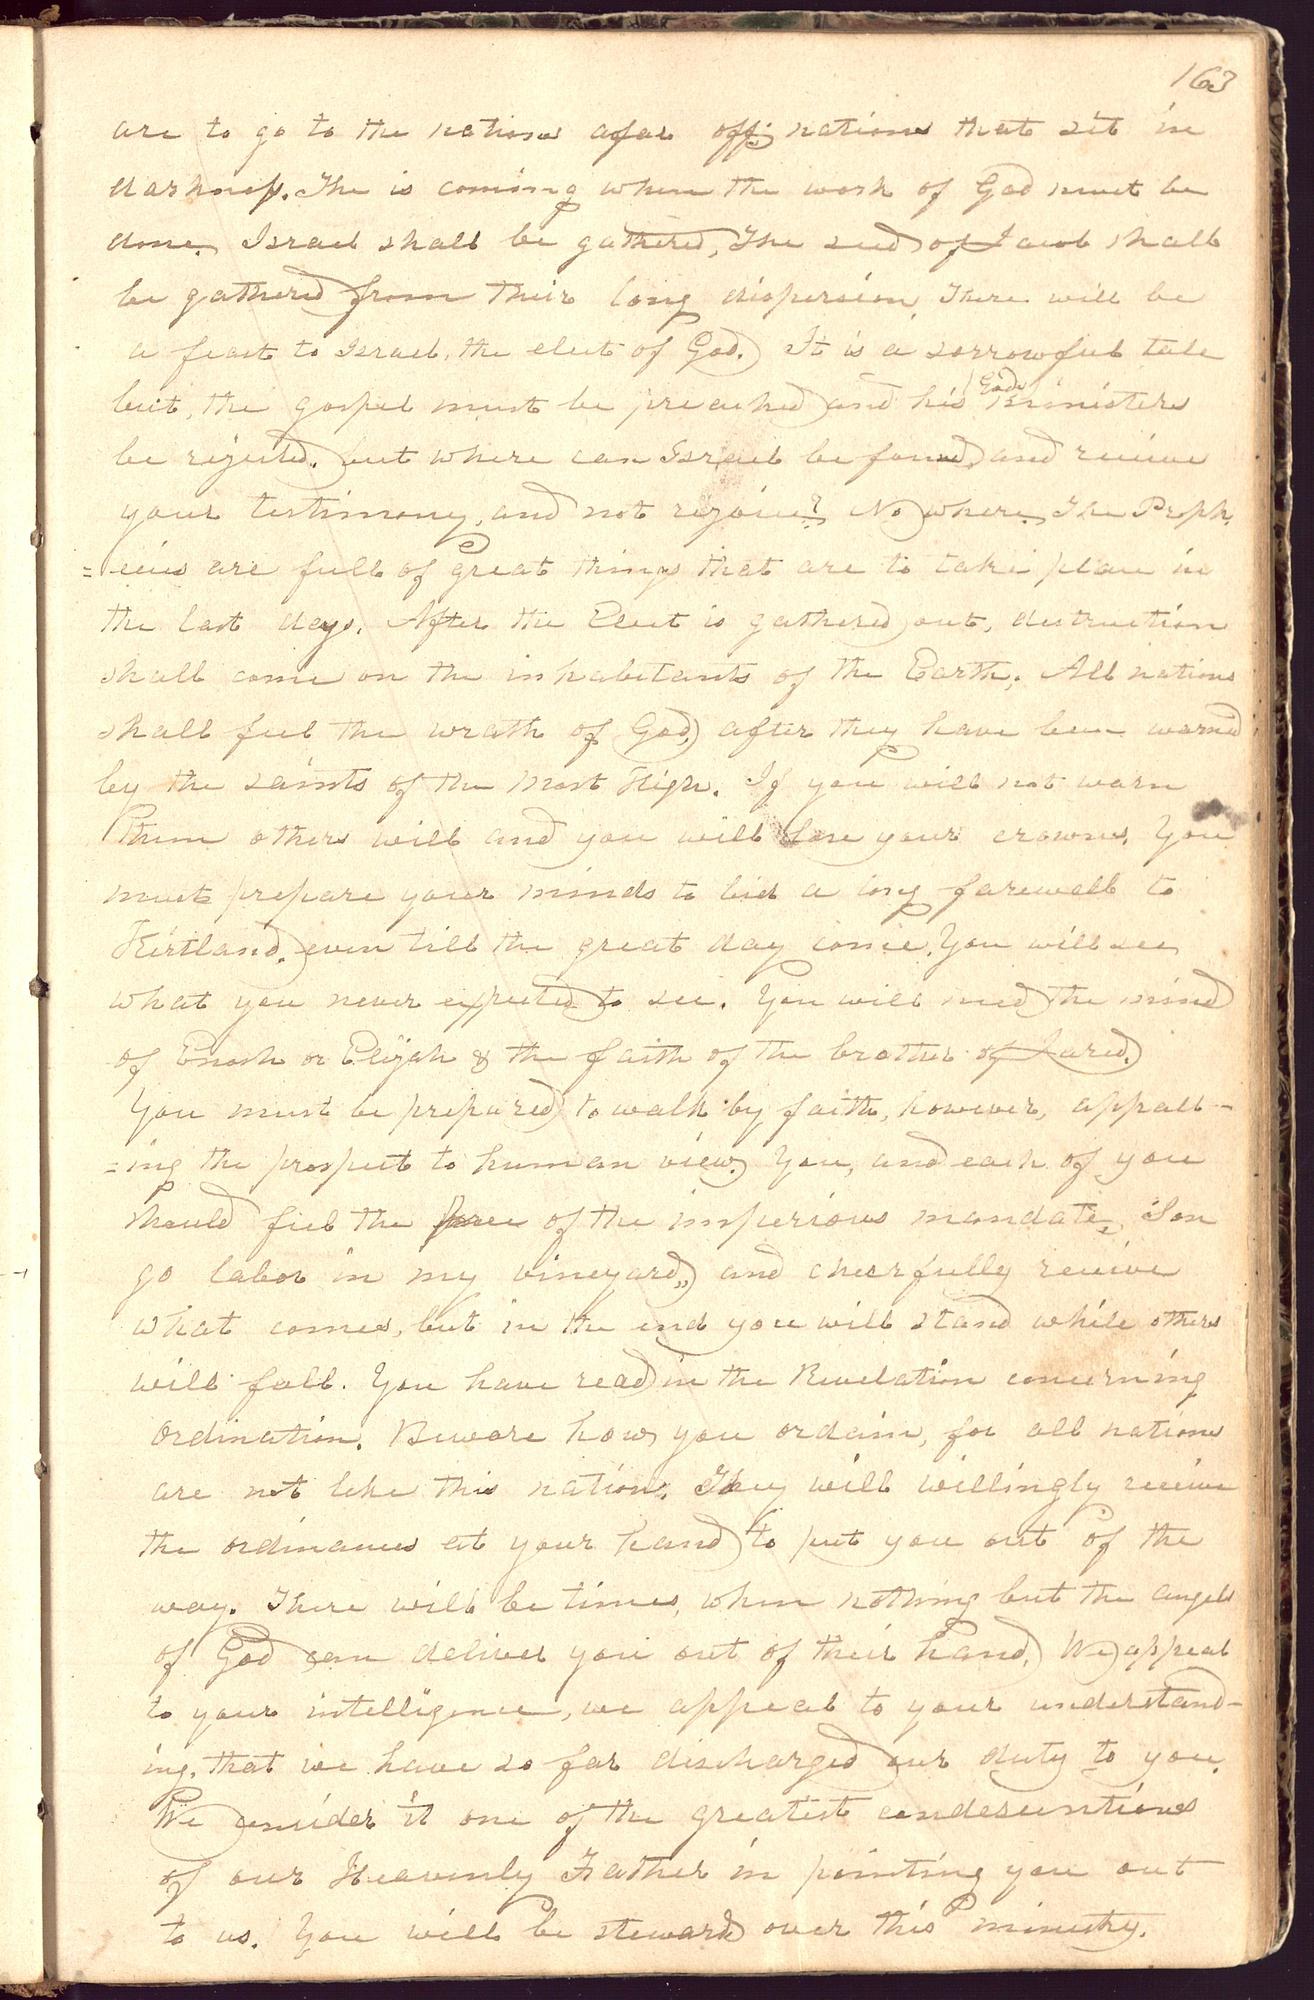 163
are to go to the nations afar off; nations that sit in
darkness. The is coming when the work of God must be
done. Israel shall be gathered, The seed of Jacob shall
be gathered from their long dispersion. There will be
a feast to Israel, the elect of God. It is a sorrowful tale
but, the gospel must be preached and his Gods ministers
be rejected. but where can Israel be found and receive
your testimony, and not rejoice? No where. The Proph,
=ecies are full of great things that are to take place in
the last days. After the Elect is gathered out, destruction
shall come on the inhabitants of the Earth; All nations
shall feel the wrath of God, after they have been warned
by the saints of the Most High. If you will not warn
them others will and you will lose your crowns. You
must prepare your minds to bid a long farewell to
Kirtland, even till the great day come. You will see
what you never expected to see. You will need the mind
of Enoch or Elijah & the faith of the brother of Jared.
You must be prepared to walk by faith, however, appall-
=ing the prospect to human view. You, and each of you
should feel the force of the imperious mandate, Son
go labor in my vineyard," and cheerfully receive
what comes, but in the end you will stand while others
will fall. You have read in the Revelation concerning
Ordination. Beware how you ordain, for all nations
are not like this nation. They will willingly receive
the ordinances at your hand to put you out of the
way. There will be times, when nothing but the angels
of God can deliver you out of their hand. We appeal
to your intelligence, we appeal to your understand-
ing. that we have so far discharged our duty to you.
We consider it one of the greatest condescentions
of our Heavenly Father in pointing you out
to us. You will be steward over this ministry.